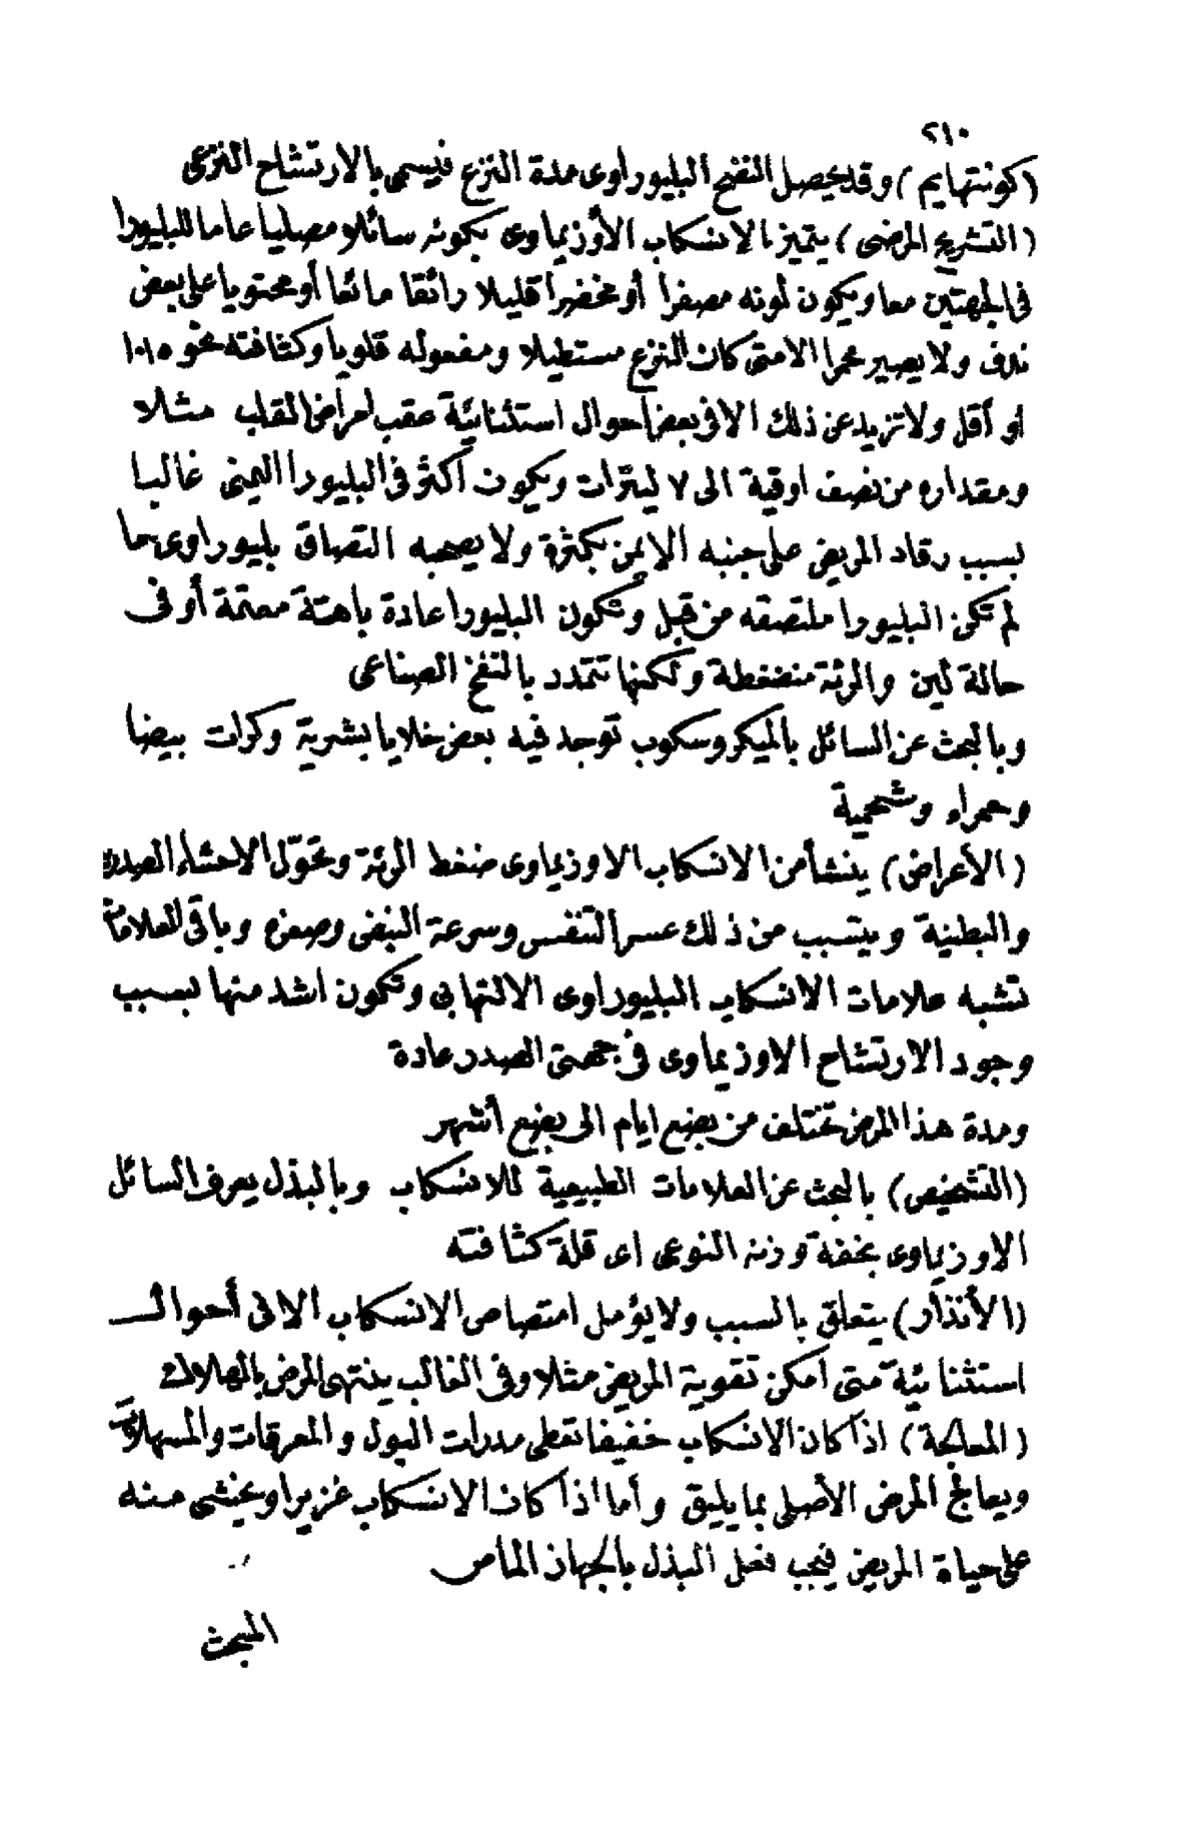 ٢١٠
(كونتهايم) وقد يحصل النضح البليوراوى مدة النزع فيسمى بالارتشاح النزعى
(التشريح المرضى) يتميز الانسكاب الأوزيماوى بكونه سائلا مصليا عاما للبليورا
فى الجهتين معا ويكون لونه مصفرا أو مخضرا قليلا رائقا مائعا أو محتويا على بعض
ندف ولا يصير محمرا الا متى كان النزع مستطيلا ومفعوله قلويا وكثافته نحو ١٠١٥
او أقل ولا تزيد عن ذلك الا فى بعض احوال استثنائية عقب امراض القلب مثلا
ومقداره من نصف اوقية الى ٧ ليترات ويكون اكثر فى البليورا اليمنى غالبا
بسبب رقاد المريض على جنبه الايمن بكثرة ولا يصحبه التصاق بليوراوى ما
لم تكن البليورا ملتصقه من قبل وتكون البليورا عادة باهتة معتمة أو فى
حالة لين والرئة منضغطة ولكنها تتمدد بالنفخ الصناعى
وبالبحث عن السائل بالميكروسكوب توجد فيه بعض خلايا بشرية وكرات بيضا
وحمراء وشحمية
(الأعراض) ينشأ من الانسكاب الاوزيماوى ضغط الرئة وتحوّل الاحشاء الصدرية
والبطنية ويتسبب من ذلك عسر التنفس وسرعة النبض وصغره وباقى العلامات
تشبه علامات الانسكاب البليوراوى الالتهابى وتكون اشد منها بسبب
وجود الارتشاح الاوزيماوى فى جهتى الصدر عادة
ومدة هذا المرض تختلف من بضع ايام الى بضع أشهر
(التشخيص) بالبحث عن العلامات الطبيعية للانسكاب وبالبذل يعرف السائل
الاوزيماوى بخفة وزنه النوعى اى قلة كثافته
(الأنذار) يتعلق بالسبب ولا يؤمل امتصاص الانسكاب الا فى أحوال
استثنائية متى امكن تقوية المريض مثلا وفى الغالب ينتهى المرض بالهلاك
(المعالجة) اذا كان الانسكاب خفيفا تعطى مدرات البول والمعرقات والمسهلات
ويعالج المرض الأصلى بما يليق وأما اذا كان الانسكاب غزيرا ويخشى منه
على حياة المريض فيجب فعل البذل بالجهاز الماص
المبحث